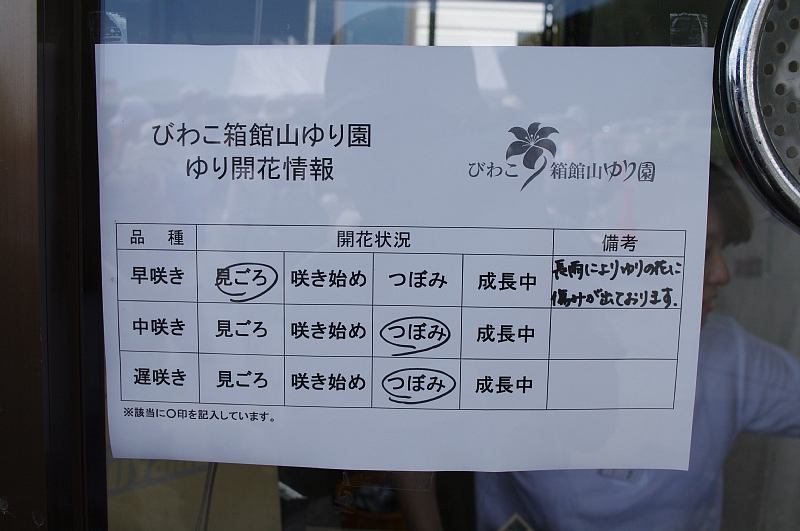 びわこ箱館山ゆり園
ゆり開花情報
びわこ 箱館山ゆり園
品種 開花状況 備考
早咲き 見ごろ 咲き始め つぼみ 成長中 長雨によりゆりの花に
傷みが出ております。
中咲き 見ごろ 咲き始め つぼみ 成長中
遅咲き 見ごろ 咲き始め つぼみ 成長中
※該当に〇印を記入しています。